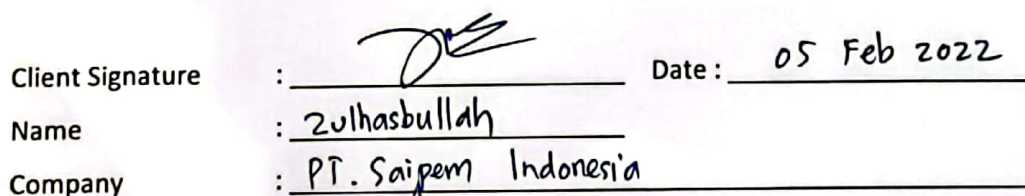 Client Signature : Date : 05 Feb 2022
Name : Zulhasbullah
Company : PT. Saipem Indonesia